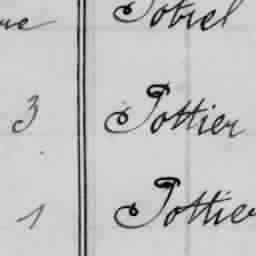 re Potrel
3 Pottier
1 Pottier